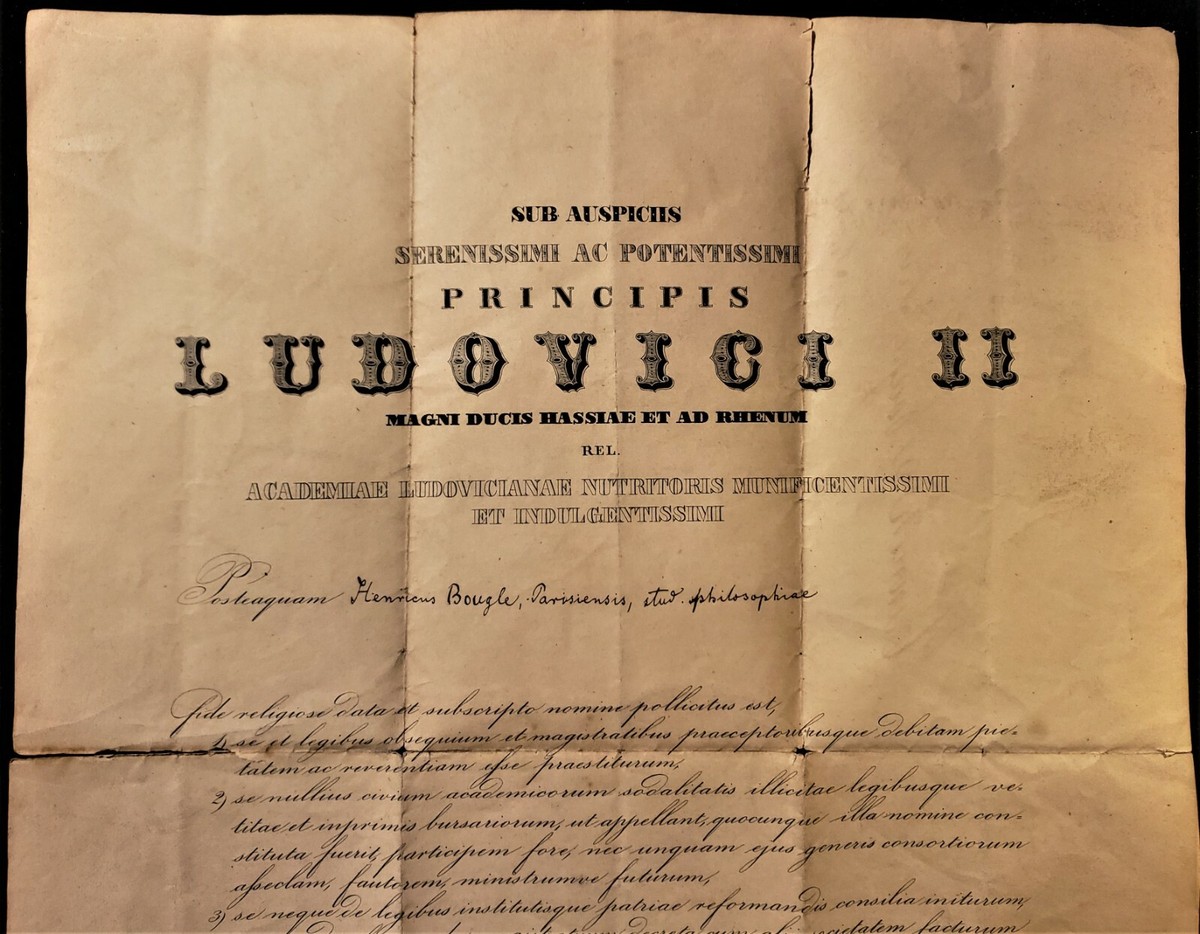 SUB AUSPICIIS
SERENISSIMI AC POTENTISSIMI
PRINCIPIS
LUDOVICI II
MAGNI DUCIS HASSIAE ET AD RHENUM
REL.
ACADEMIAE LUDOVICIANAE NUTRITORIS MUNIFICENTISSIMI
ET INDULGENTISSIMI
Posteaquam Henricus Bougle, Parisiensis, stud. philosophiae
fide religiose data et subscripto nomine pollicitus est,
1) se et legibus obsequium et magistratibus praeceptoribusque debitam pie-
tatem ac reverentiam esse praestiturum,
2) se nullius civium academicorum sodalitatis illicitae legibusque ve-
titae et inprimis bursariorum, ut appellant, quocunque illa nomine con-
stituta fuerit, participem fore, nec unquam ejus generis consortiorum
asseclam, fautorem, ministrumve futurum,
3) se neque de legibus institutisque patriae reformandis consilia initurum,
decreta cum societatem facturum